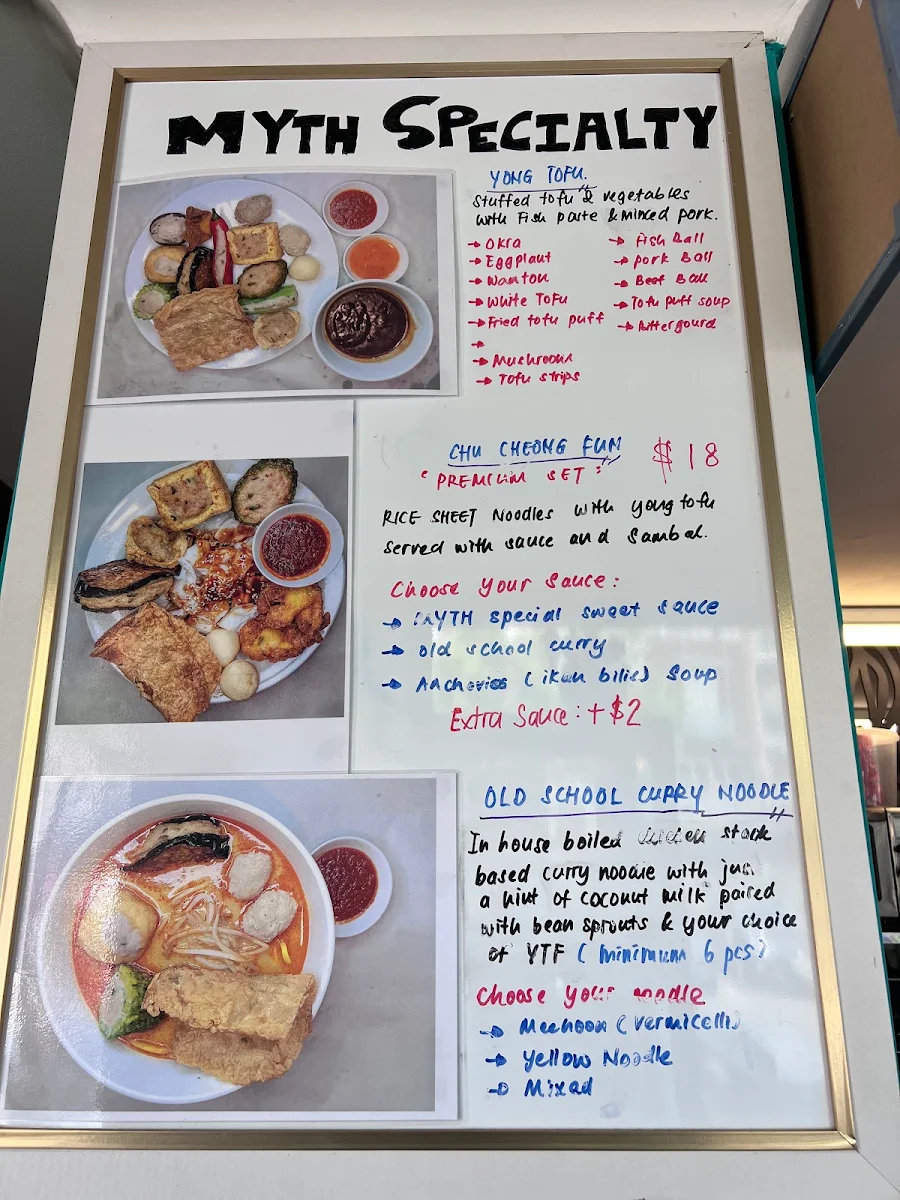 MYTH SPECIALTY
YONG TOFU.
Stuffed tofu & vegetables
with Fish paste & minced pork.
→ Okra
→ Eggplant
→ Wanton
→ White Tofu
→ Fried tofu puff
→
→ Mushroom
→ Tofu strips
→ Fish Ball
→ pork Ball
→ Beef Ball
→ Tofu puff soup
→ Bittergourd
CHU CHEONG FUN $18
"PREMIUM SET"
RICE SHEET Noodles with yong tofu
served with sauce and Sambal.
Choose your sauce:
→ MYTH special sweet sauce
→ old school curry
→ Anchovies (ikan bilis) soup
Extra Sauce: +$2
OLD SCHOOL CURRY NOODLE
In house boiled stock
based curry noodle with jus
a hint of coconut milk paired
with bean sprouts & your choice
of YTF (minimum 6 pcs)
Choose your noodle
→ Meehoon (vermicelli)
→ Yellow Noodle
→ Mixed